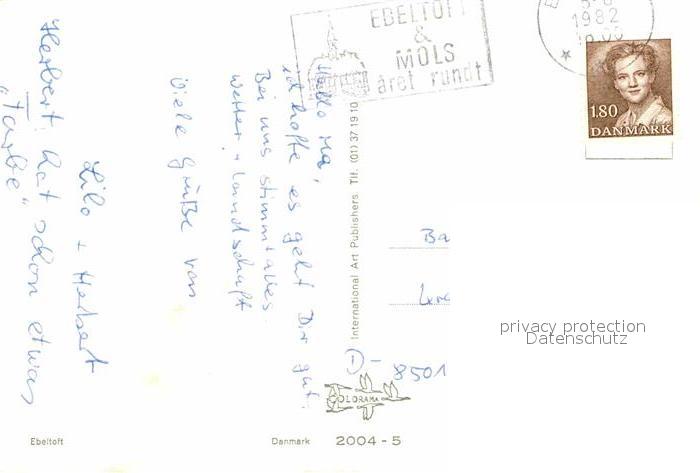 EBELTOFT
&
MOLS
året rundt
1982
1.80
DANMARK
Hallo Ma,
ich hoffe es geht Dir gut.
Bei uns stimmt alles
Wetter + Landschaft
Viele Grüße von
Lilo + Herbert
Herbert hat schon etwas
"Farbe"
International Art Publishers. Tlf. (01) 37 19 10
Ba
D- 8501
COLORAMA
privacy protection
Datenschutz
Ebeltoft
Danmark
2004 - 5